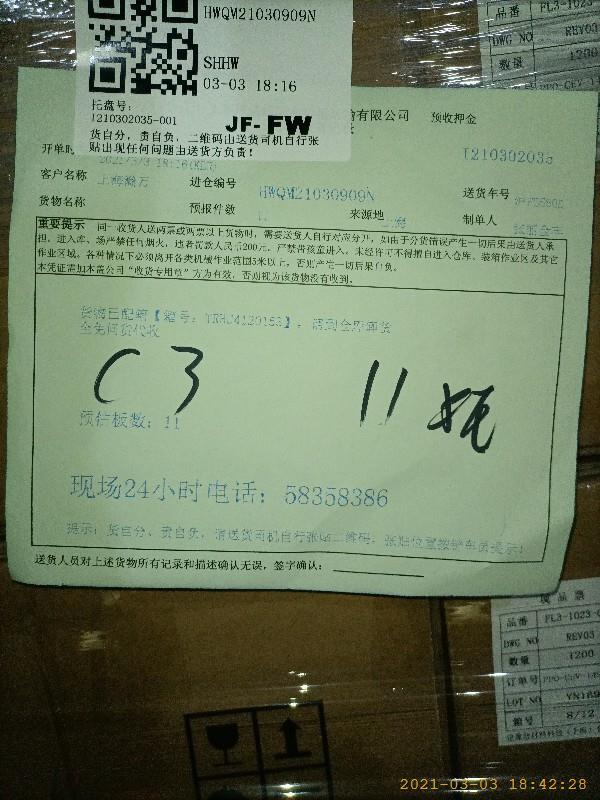 HWQM21030909N
SHHW
03-03 18:16
托盘号：
1210302035-001
JF-FW
货自分，责自负，二维码由送货司机自行张
贴出现任何问题由送货方负责！
有限公司 预收押金
开单时
1210302035
客户名称 上海瀚万 进仓编号 HWQM21030909N 送货车号
货物名称 预报件数 11 来源地 上海 制单人
重要提示 同一收货人送两票或两票以上货物时，需要送货人自行对应分开，如由于分货错误产生一切后果由送货人承
担，进入库、场严禁任何烟火，违者罚款人民币200元。严禁带孩童进入。未经许可不得擅自进入仓库、装箱作业区及其它
作业区域。各种情况下必须离开各类机械作业范围5米以上，否则产生一切后果自负。
本凭证需加本盖公司“收货专用章”方为有效，否则视为该货物没有收到。
货物已配箱【箱号：
C3 11
预估板数：11
现场24小时电话：58358386
提示：货自分，责自负，请送货司机自行张贴二维码，张贴位置按
送货人员对上述货物所有记录和描述确认无误，签字确认：
品番 FL3-1023
DWG NO REV03
数量 1200
品番 FL3-1023-
DWG NO REV03
数量 1200
订单号
LOT NO
箱号 8/12
2021-03-03 18:42:28